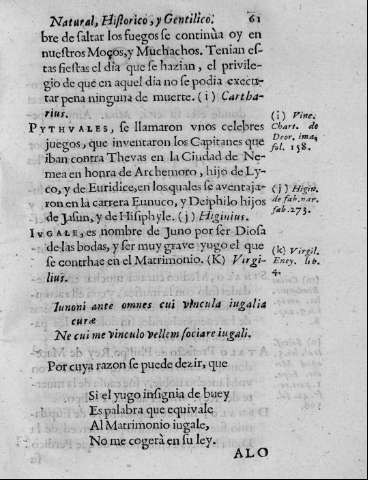 Natural, Historico, y Gentilico. 61
bre de saltar los fuegos se continùa oy en
nuestros Moços, y Muchachos. Tenian es-
tas fiestas el dia que se hazian, el privile-
gio de que en aquel dia no se podia execu-
tar pena ninguna de muerte. (i) Cartha-
rius.
(i) Vinc.
Chart. de
Deor. ima,
fol. 158.
PYTHVALES, se llamaron vnos celebres
juegos, que inventaron los Capitanes que
iban contra Thevas en la Ciudad de Ne-
mea en honra de Archemoro, hijo de Ly-
co, y de Euridice, en los quales se aventaja-
ron en la carrera Eunuco, y Deiphilo hijos
de Jasun, y de Hisiphyle. (j) Higinius.
(j) Higin.
de fab. nar.
fab. 273.
IUGALE, es nombre de Juno por ser Diosa
de las bodas, y ser muy grave yugo el que
se contrhae en el Matrimonio. (K) Virgi-
lius.
(k) Virgil.
Eney. lib.
4.
Iunoni ante omnes cui vincula iugalia
curæ
Ne cui me vinculo vellem sociare iugali.
Por cuya razon se puede dezir, que
Si el yugo insignia de buey
Es palabra que equivale
Al Matrimonio iugale,
No me cogerà en su ley.
ALO